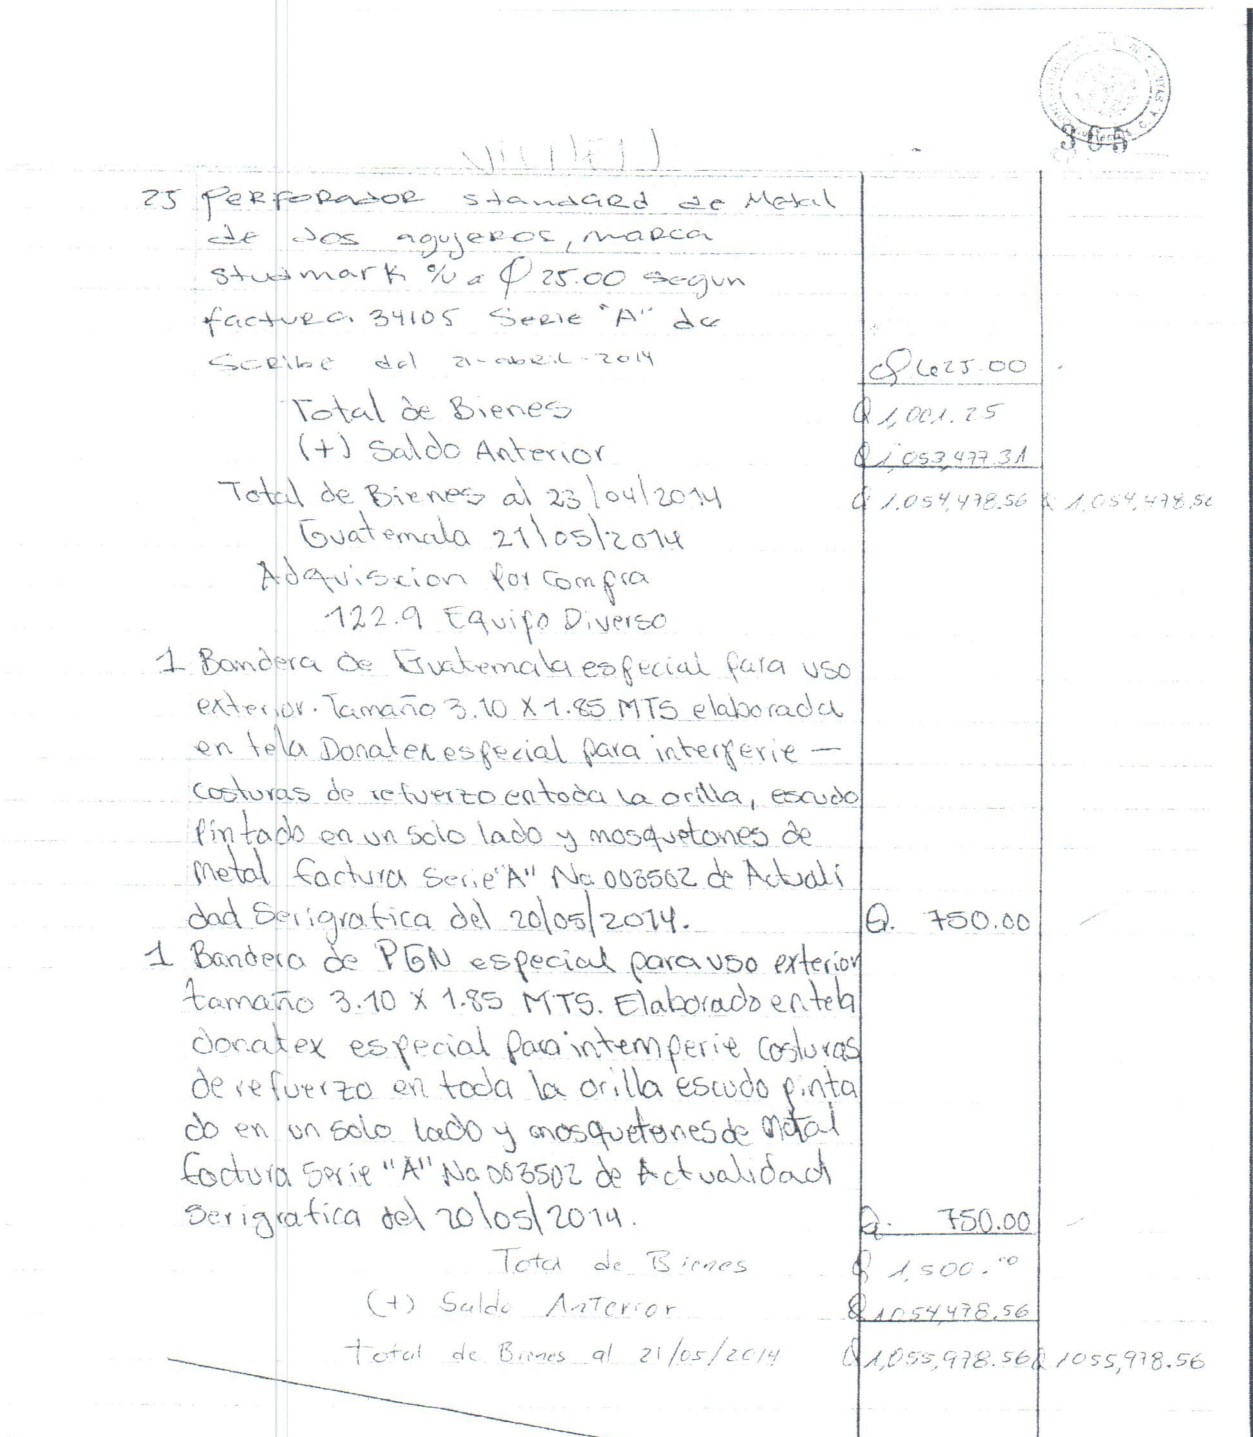 305
25 Perforador standard de Metal
de dos agujeros, marca
studmark c/u a Q 25.00 segun
factura 34105 Serie "A" de
Scribe del 21-abril-2014 Q 625.00
Total de Bienes Q 1,001.25
(+) Saldo Anterior Q 1,053,477.31
Total de Bienes al 23/04/2014 Q 1,054,478.56 Q 1,054,478.56
Guatemala 21/05/2014
Adquiscion por compra
122.9 Equipo Diverso
1 Bandera de Guatemala especial para uso
exterior. Tamaño 3.10 X 1.85 MTS elaborada
en tela Donatex especial para interperie —
costuras de refuerzo en toda la orilla, escudo
pintado en un solo lado y mosquetones de
Metal factura Serie "A" No 003502 de Actuali
dad Serigrafica del 20/05/2014. Q. 750.00
1 Bandera de PGN especial para uso exterior
tamaño 3.10 X 1.85 MTS. Elaborado en tela
donatex especial para intemperie costuras
de refuerzo en toda la orilla escudo pinta
do en un solo lado y mosquetones de Metal
factura Serie "A" No 003502 de Actualidad
Serigrafica del 20/05/2014. Q. 750.00
Total de Bienes Q 1,500.00
(+) Saldo Anterior Q 1,054,478.56
total de Bienes al 21/05/2014 Q 1,055,978.56 Q 1055,978.56